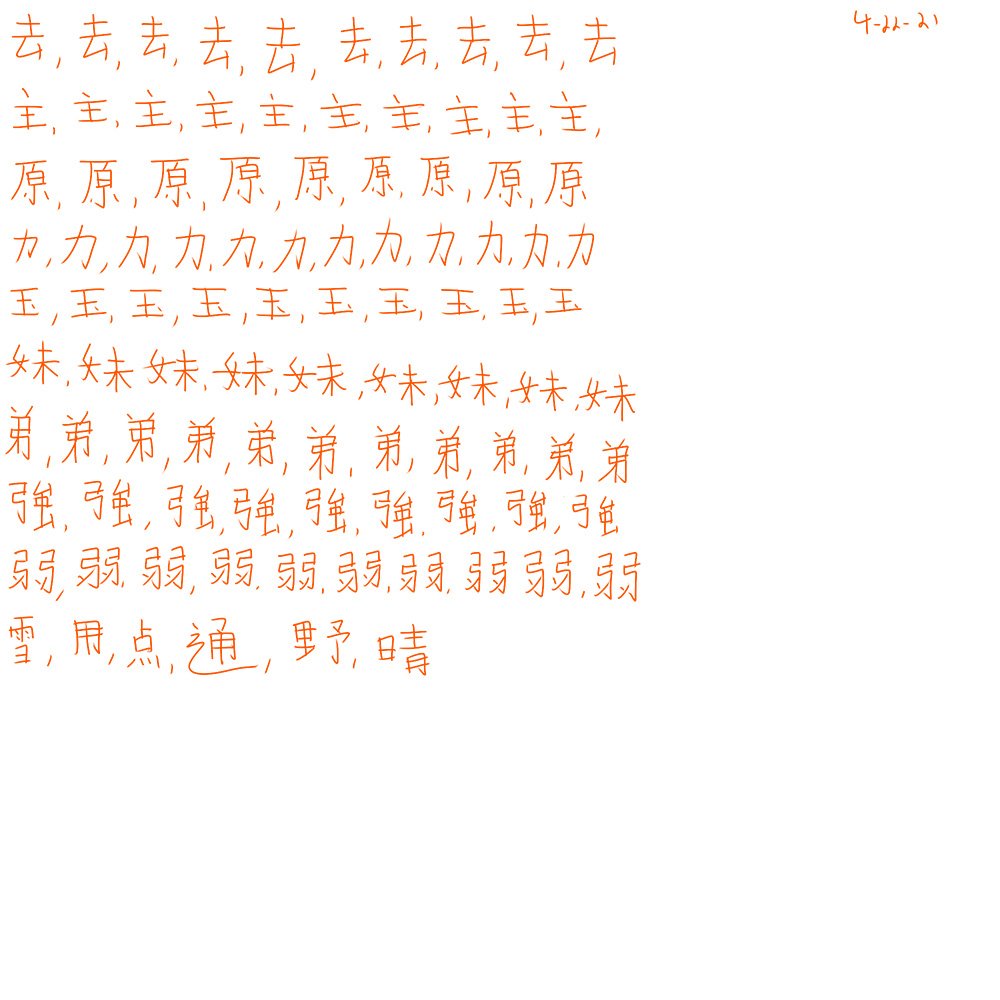 4-22-21
去, 去, 去, 去, 去, 去, 去, 去, 去, 去
主, 主, 主, 主, 主, 主, 主, 主, 主, 主,
原, 原, 原, 原, 原, 原, 原, 原, 原
力, 力, 力, 力, 力, 力, 力, 力, 力, 力, 力, 力
玉, 玉, 玉, 玉, 玉, 玉, 玉, 玉, 玉, 玉
妹, 妹, 妹, 妹, 妹, 妹, 妹, 妹, 妹
弟, 弟, 弟, 弟, 弟, 弟, 弟, 弟, 弟, 弟, 弟
強, 強, 強, 強, 強, 強, 強, 強, 強
弱, 弱, 弱, 弱, 弱, 弱, 弱, 弱, 弱, 弱
雪, 用, 点, 通, 野, 晴